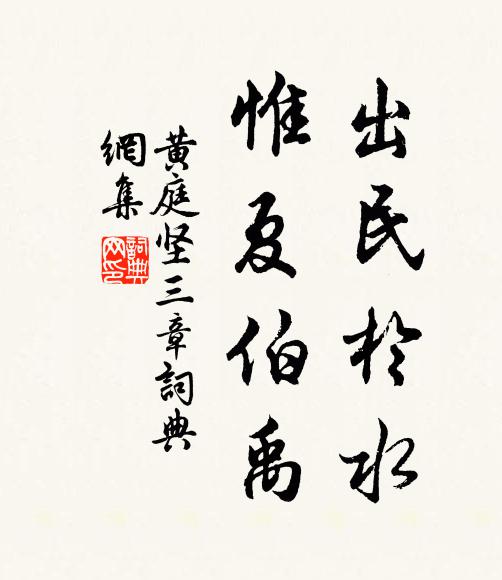 出民於水
惟夏伯禹
黄庭坚三章詞典
網集
詞典网印